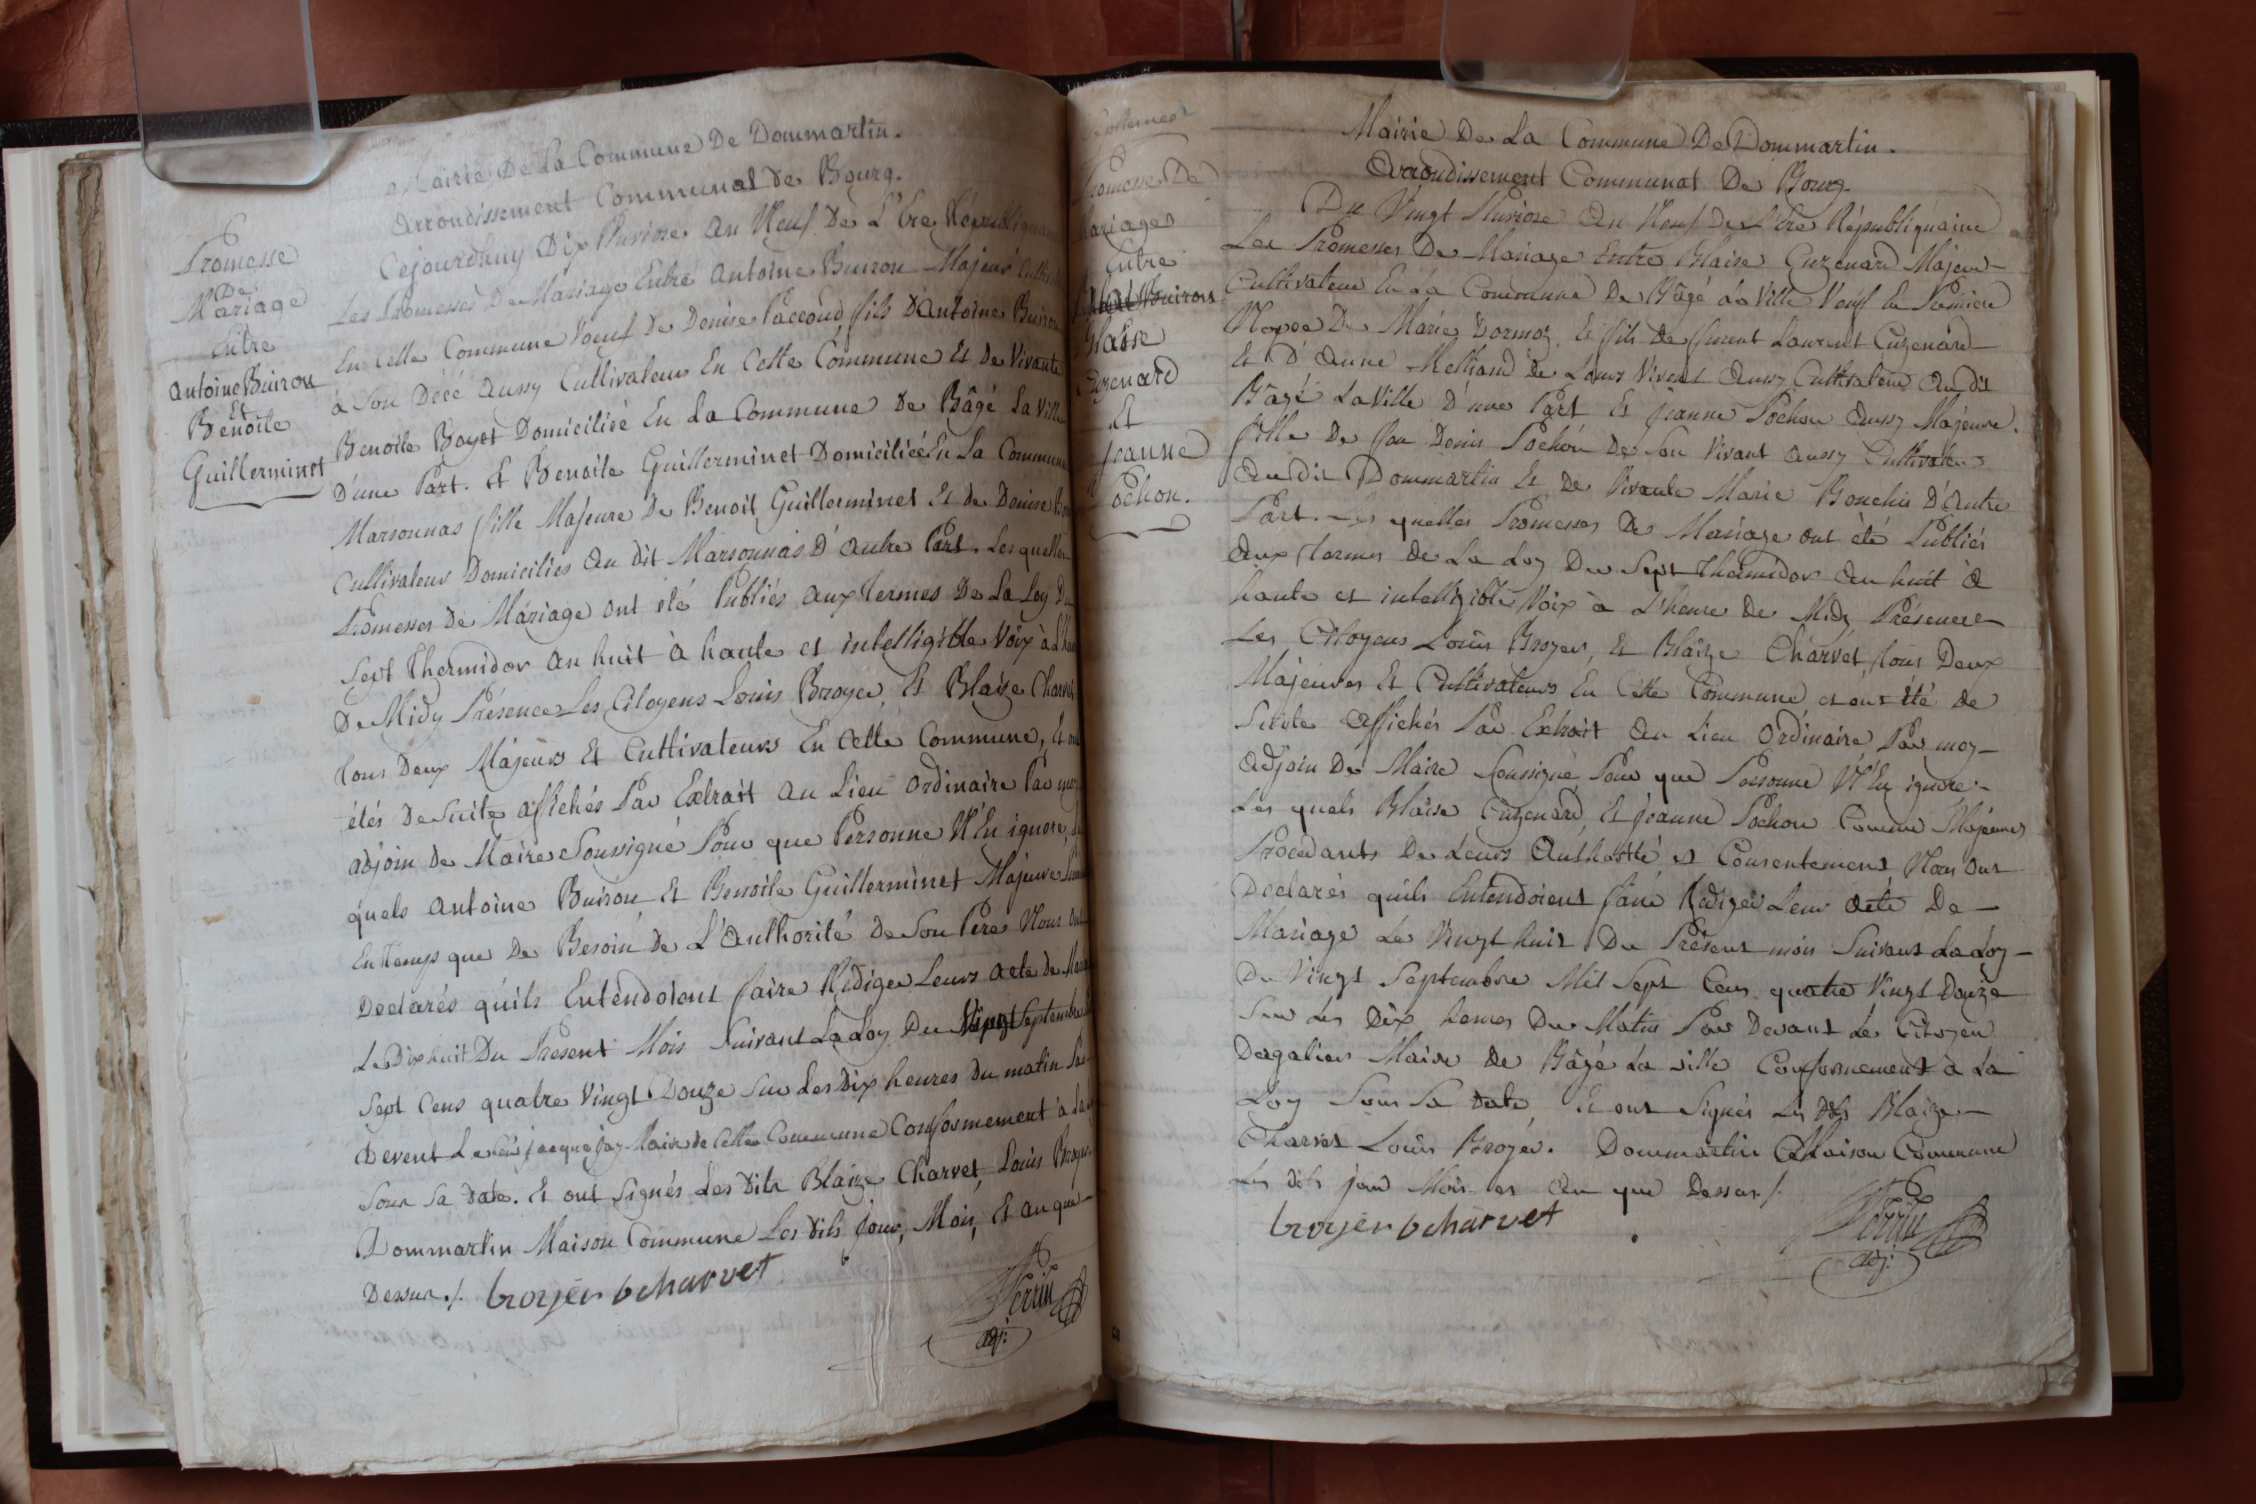 Mairie De La Commune De Dommartin.
Arrondissement Communal de Bourg.
Promesse
De
Mariage
Entre
Antoine Buiron
Et
Benoite
Guillerminet
Cejourdhuy Dix Pluviose An Neuf De L'Ere
Les Promesses De Mariage Entre Antoine Buiron Majeur
En Cette Commune Veuf de Denise Paccoud fils D'Antoine Buiron
à Son Décé Aussy Cultivateur En Cette Commune Et De Vivante
Benoite Boyet Domiciliée En La Commune de Bâgé La Ville
D'une Part. Et Benoite Guillerminet Domiciliée En La Commune
Marsonnas fille Majeure De Benoit Guillerminet Et de Denise
Cultivateur Domicilies Au dit Marsonnas D'autre Part. Lesquelles
Promesses De Mariage ont été Publiés aux termes De La Loy Du
Sept Thermidor An huit à haute et intelligible Voix à
De Midy Présence Les Citoyens Louis Broyer, Et Blaize Charvet
tous Deux Majeurs Et Cultivateurs En Cette Commune,
étés De Suite affichés Par Extrait au Lieu Ordinaire Par moy
adjoin de Maire Soussigné Pour que Personne N'En ignore,
quels Antoine Buiron Et Benoite Guillerminet Majeure
En temps que De Besoin de L'Authorité De Son Pere Nous ont
Declarés qu'ils Entendoient faire Rediger Leurs Acte de
Le Dix huit Du Present Mois Suivant La Loy Du Vingt Septembre
Sept Cens quatre Vingt Douze Sur Les Dix heures Du matin
Devent Le jacque jay Maire de Cette Commune Conformement à La
Sous Sa Date. Et ont Signés Les Dits Blaize Charvet, Louis Broyer
Dommartin Maison Commune Les Dits jour, Mois, Et an que
Dessus ./. broyer b charvet
Perrin
adj:
Mairie De La Commune De Dommartin.
Arrondissement Communal De Bourg.
Promesse De
Mariages
Entre
Buiron
Blaise
Cuzenard
Et
Jeanne
Pochon.
Du Vingt Pluviose An Neuf De L'Ere Républiquaine
Les Promesses De Mariage Entre Blaise Cuzenard Majeur
Cultivateur En La Commune De Bâgé La Ville Veuf En Premiere
Nopce De Marie Dormoz, Et fils de furent Laurent Cuzenard
Et D'Anne De Leurs Vivent Aussy Cultivateur Au dit
Bâgé La Ville D'une Part Et Jeanne Pochon Aussy Majeure.
fille De feu Denis Pochon De Son Vivant Aussy Cultivateur
Au dit Dommartin Et De Vivante Marie Bouchis D'Autre
Part. Les quelles Promesses De Mariage ont été Publiés
aux termes de La Loy Du Sept Thermidor An huit à
haute et intelligible Voix à L'heure De Midy Présence
Les Citoyens Louis Broyer, Et Blaize Charvet tous Deux
Majeures Et Cultivateurs En Cette Commune, et ont été de
Suite Affichés Par Extrait Au Lieu Ordinaire Par moy
Adjoin De Maire Soussigné Pour que Personne N'En ignore.
Les quels Blaise Cuzenard, Et Jeanne Pochon Comme Majeures
Procedants De Leurs Authorité et Consentement Nous ont
Declarés qu'ils Entendoient faire Rediger Leur Acte De
Mariage Le Vingt huit Du Présent mois Suivant La Loy
Du Vingt Septembre Mil Sept Cens quatre Vingt Douze
Sur Les Dix heures Du Matin Par Devant Le Citoyen
Dagalier Maire de Bâgé La Ville Conformement à La
Loy Sous Sa Date, Et ont Signés Les Dits Blaize
Charvet Louis Broyer. Dommartin Maison Commune
Les Dits jour Mois et An que Dessus ./.
broyer b charvet
Perrin
adj: